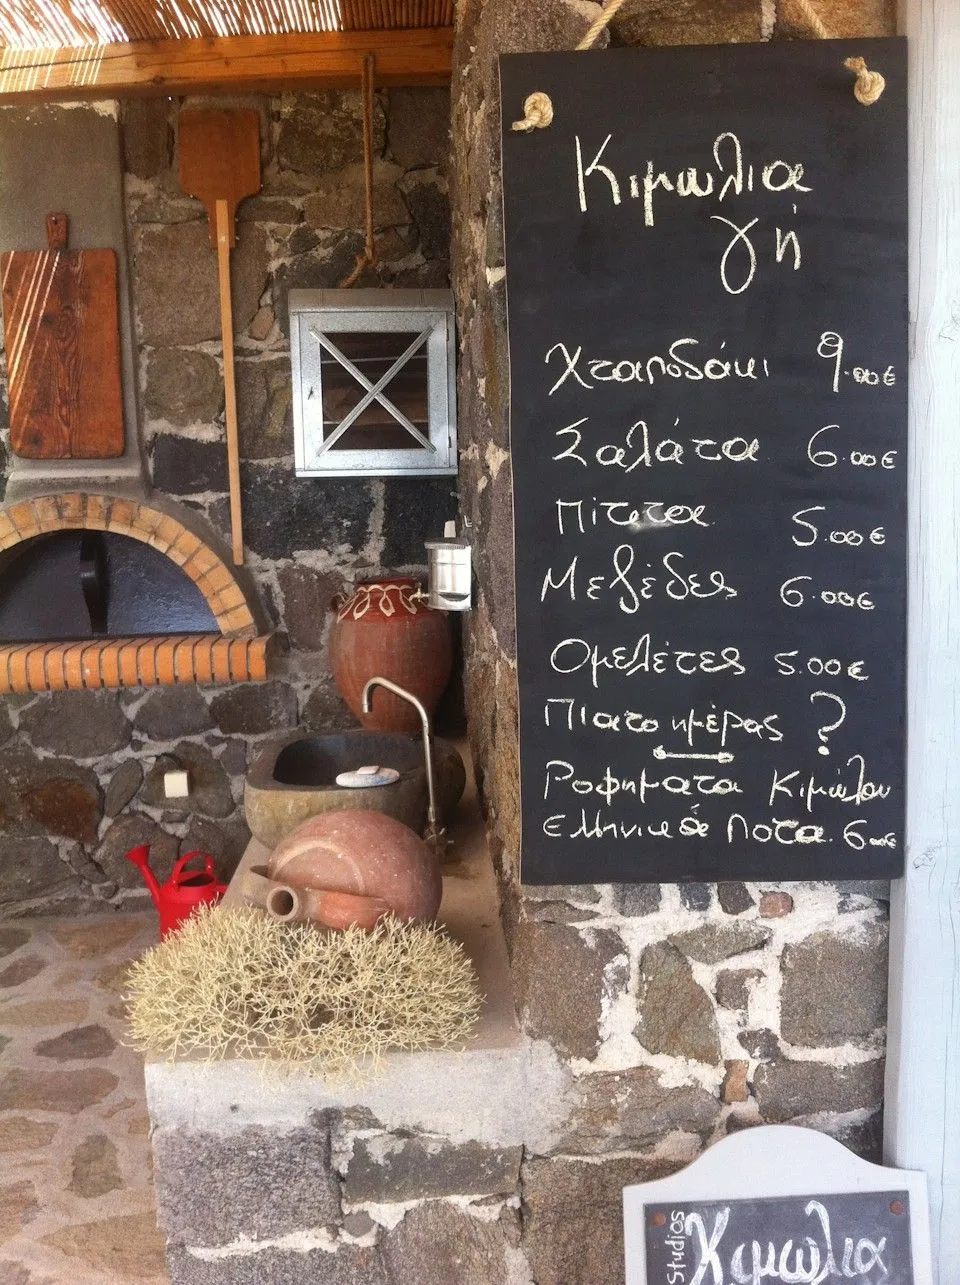 Κιμωλια
γή
Χταποδάκι 9.00€
Σαλάτα 6.00€
Πίτετα 5.00€
Μεζέδες 6.00€
Ομελέτες 5.00€
Πιατο ημέρας ?
Ροφήματα Κιμώλου
Ελληνικά Ποτα 6.00€
Studios
Κιμωλια